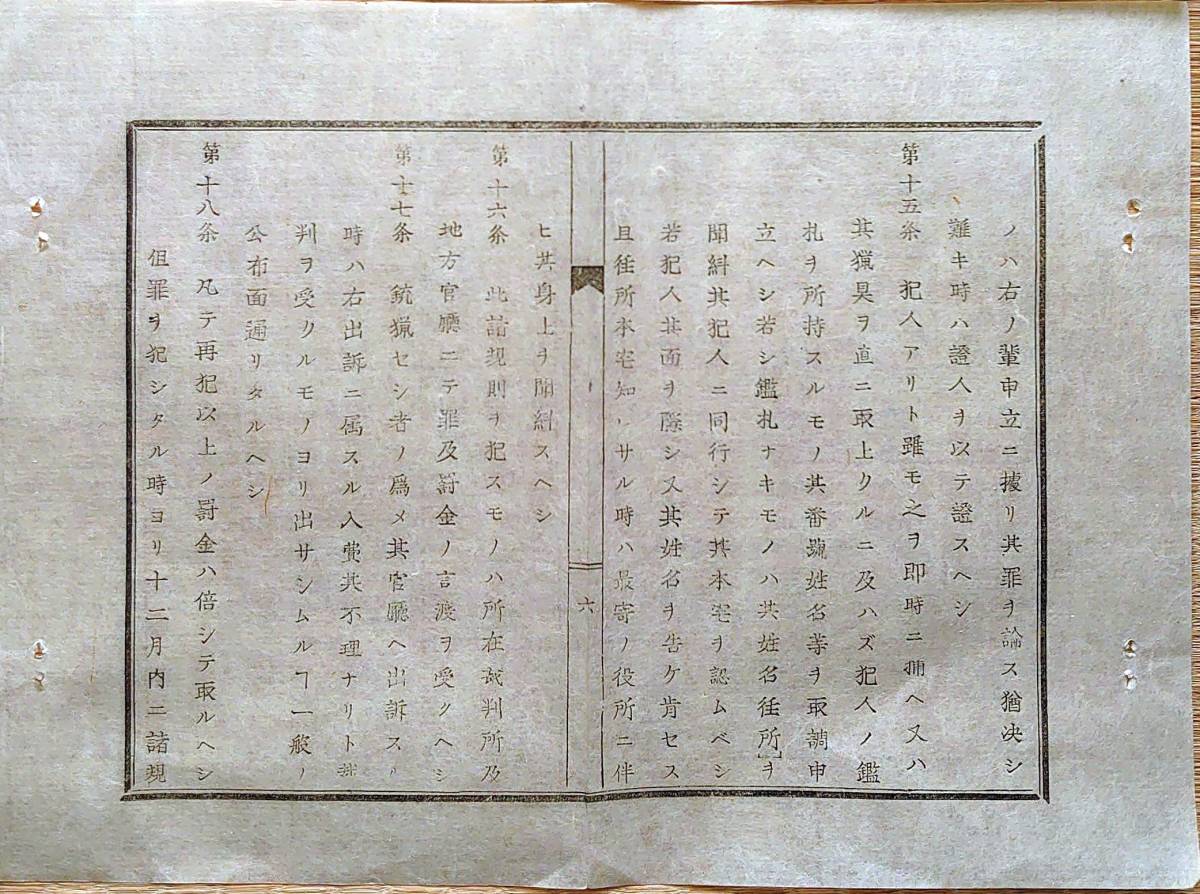 ノハ右ノ輩申立ニ據リ其罪ヲ論ス猶決シ
難キ時ハ證人ヲ以テ證スヘシ
第十五条 犯人アリト雖モ之ヲ即時ニ捕ヘ又ハ
其猟具ヲ直ニ取上クルニ及ハズ犯人ノ鑑
札ヲ所持スルモノ其番號姓名等ヲ取調申
立ヘシ若シ鑑札ナキモノハ其姓名住所ヲ
聞糾其犯人ニ同行シテ其本宅ヲ認ムベシ
若犯人其面ヲ隱シ又其姓名ヲ告ケ肯セス
且住所本宅知レサル時ハ最寄ノ役所ニ伴
六
ヒ其身上ヲ聞糾スヘシ
第十六条 此諸規則ヲ犯スモノハ所在裁判所及
地方官廳ニテ罪及罸金ノ言渡ヲ受クヘシ
第十七条 銃猟セシ者ノ爲メ其官廳ヘ出訴スル
時ハ右出訴ニ属スル入費其不理ナリト裁
判ヲ受クルモノヨリ出サシムルヿ一般ノ
公布面通リタルヘシ
第十八条 凡テ再犯以上ノ罸金ハ倍シテ取ルヘシ
但罪ヲ犯シタル時ヨリ十二月内ニ諸規